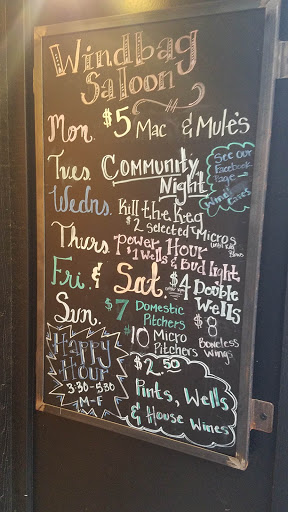 Windbag
Saloon
Mon. $5 Mac & Mule's
Tues. Community
Night
See our
Facebook
Page
Wine!
Wedns. Kill the Keg
$2 selected Micros
Thurs. Power Hour
$1 Wells & Bud Light
Fri. & Sat. $4 Double
Wells
Sun. $7 Domestic
Pitchers
$10 Micro
Pitchers
$8
Boneless
Wings
Happy
Hour
3:30-5:30
M-F
$2.50
Pints, Wells
& House Wines